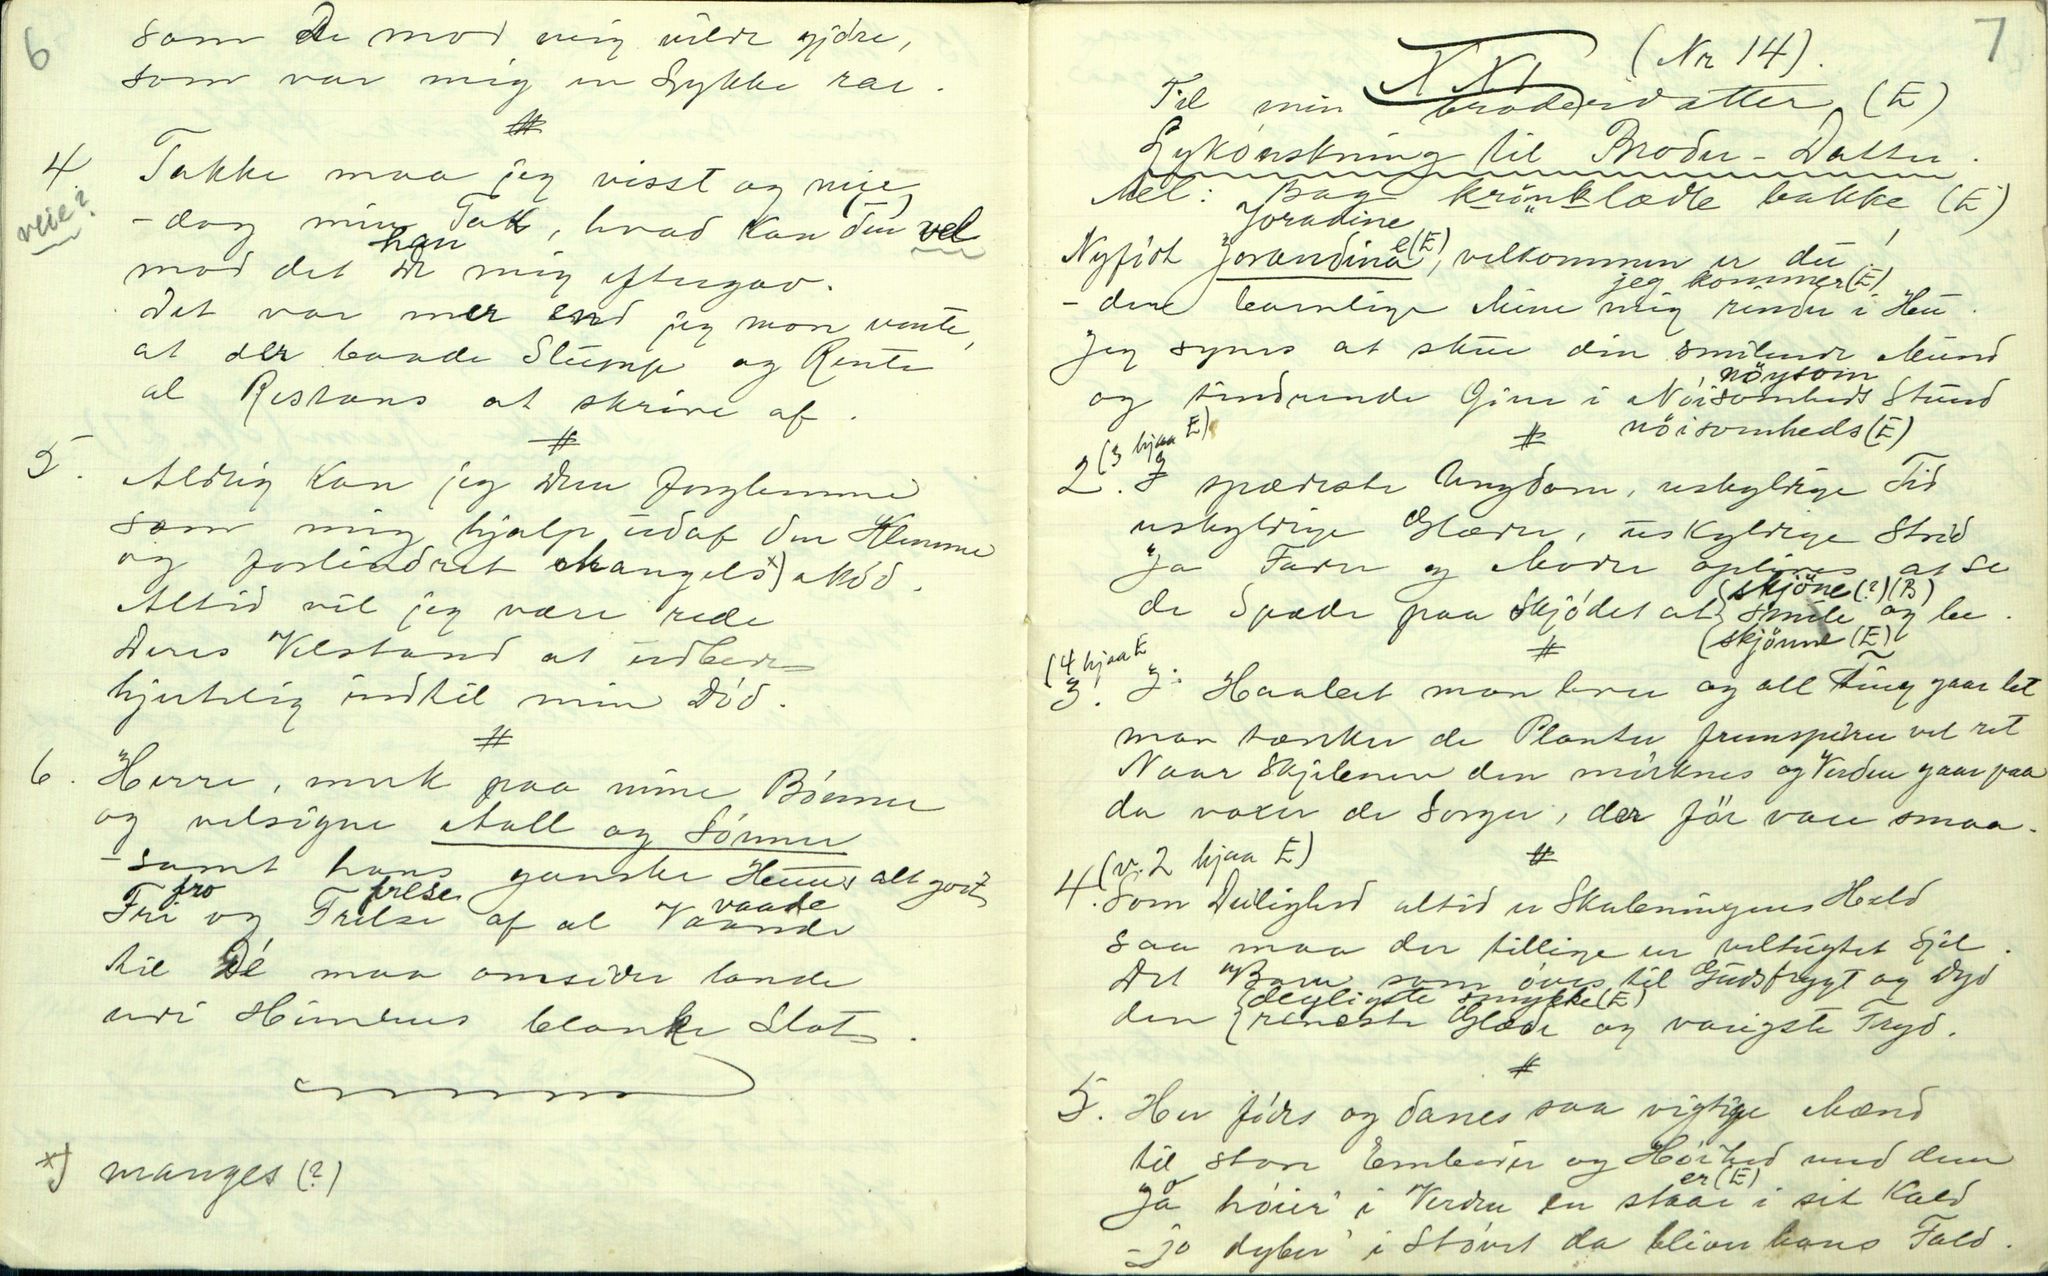 6
som De mod mig vilde gjöre,
som var mig en Lykke rar.
#
4. Takke maa jeg visst og neie
veie?
- dog min Tak, hvad kan den vel
han
mod det De mig eftergav.
Det var mer end jeg mon vente,
at der baade Stump og Rente
al Restans at skrive af.
#
5. Aldrig kan jeg Dem forglemme
som mig hjalp udaf den Klemme
og forlindret Mangels x) Nöd.
Altid vil jeg være rede
Deres Velstand at udbede
hjertelig indtil min Död.
#
6. Herre, merk paa mine Bönner
og velsigne Aall og Sönner
- samt hans ganske Huus alt godt
fro frelse vaade
Fri og Frelse af al Vaande
til Dé maa omsider lande
udi Himlens blanke Slot.
x) manges (?)
7
XXI (Nr 14).
Til min broderdatter (E)
Lykönskning til Broder-Datter.
Mel: Bag krönklædte bakke (E)
Joradine
Nyfödt Jorandina e(E), velkommen er du!
jeg kommer (E)
- den barnlige Mine mig rinder i Hu.
Jeg synes at skue din smilende Mund
nöysom
og tindrende Öine i Nöisomheds Stund
# nöisomheds (E)
(3 hjaa E)
2. I spædeste Ungdom, uskyldige Tid
uskyldige Glæder, uskyldige Strid
Ja Fader og Moder oplives at se
(skjöne (?) (B)
de Spæde paa Skjödet at smile og lee.
# (skjönne (E)
(4 hjaa E
3. I Haabet man lever og all Ting gaar let
man tænker de Planter fremspirer vel ret
Naar Skjebnen den mörknes og Verden gaar paa
da voxer de Sorger, der för vare smaa.
#
(v. 2 hjaa E)
4. Som Deilighed altid er Skabningens Held
saa maa der tillige en veltugtet Sjel.
Det Barn som öves til Gudsfrygt og Dyd
(deyligste smykke (E)
den (reneste Glæde og varigste Fryd.
#
5. Her föds og danes saa vigtige Mænd
til store Embeder og Höihed med dem
er (E)
Jo höier' i Verden en staar i sit Kald
- jo dyber' i Stövet da bliver hans Fald.